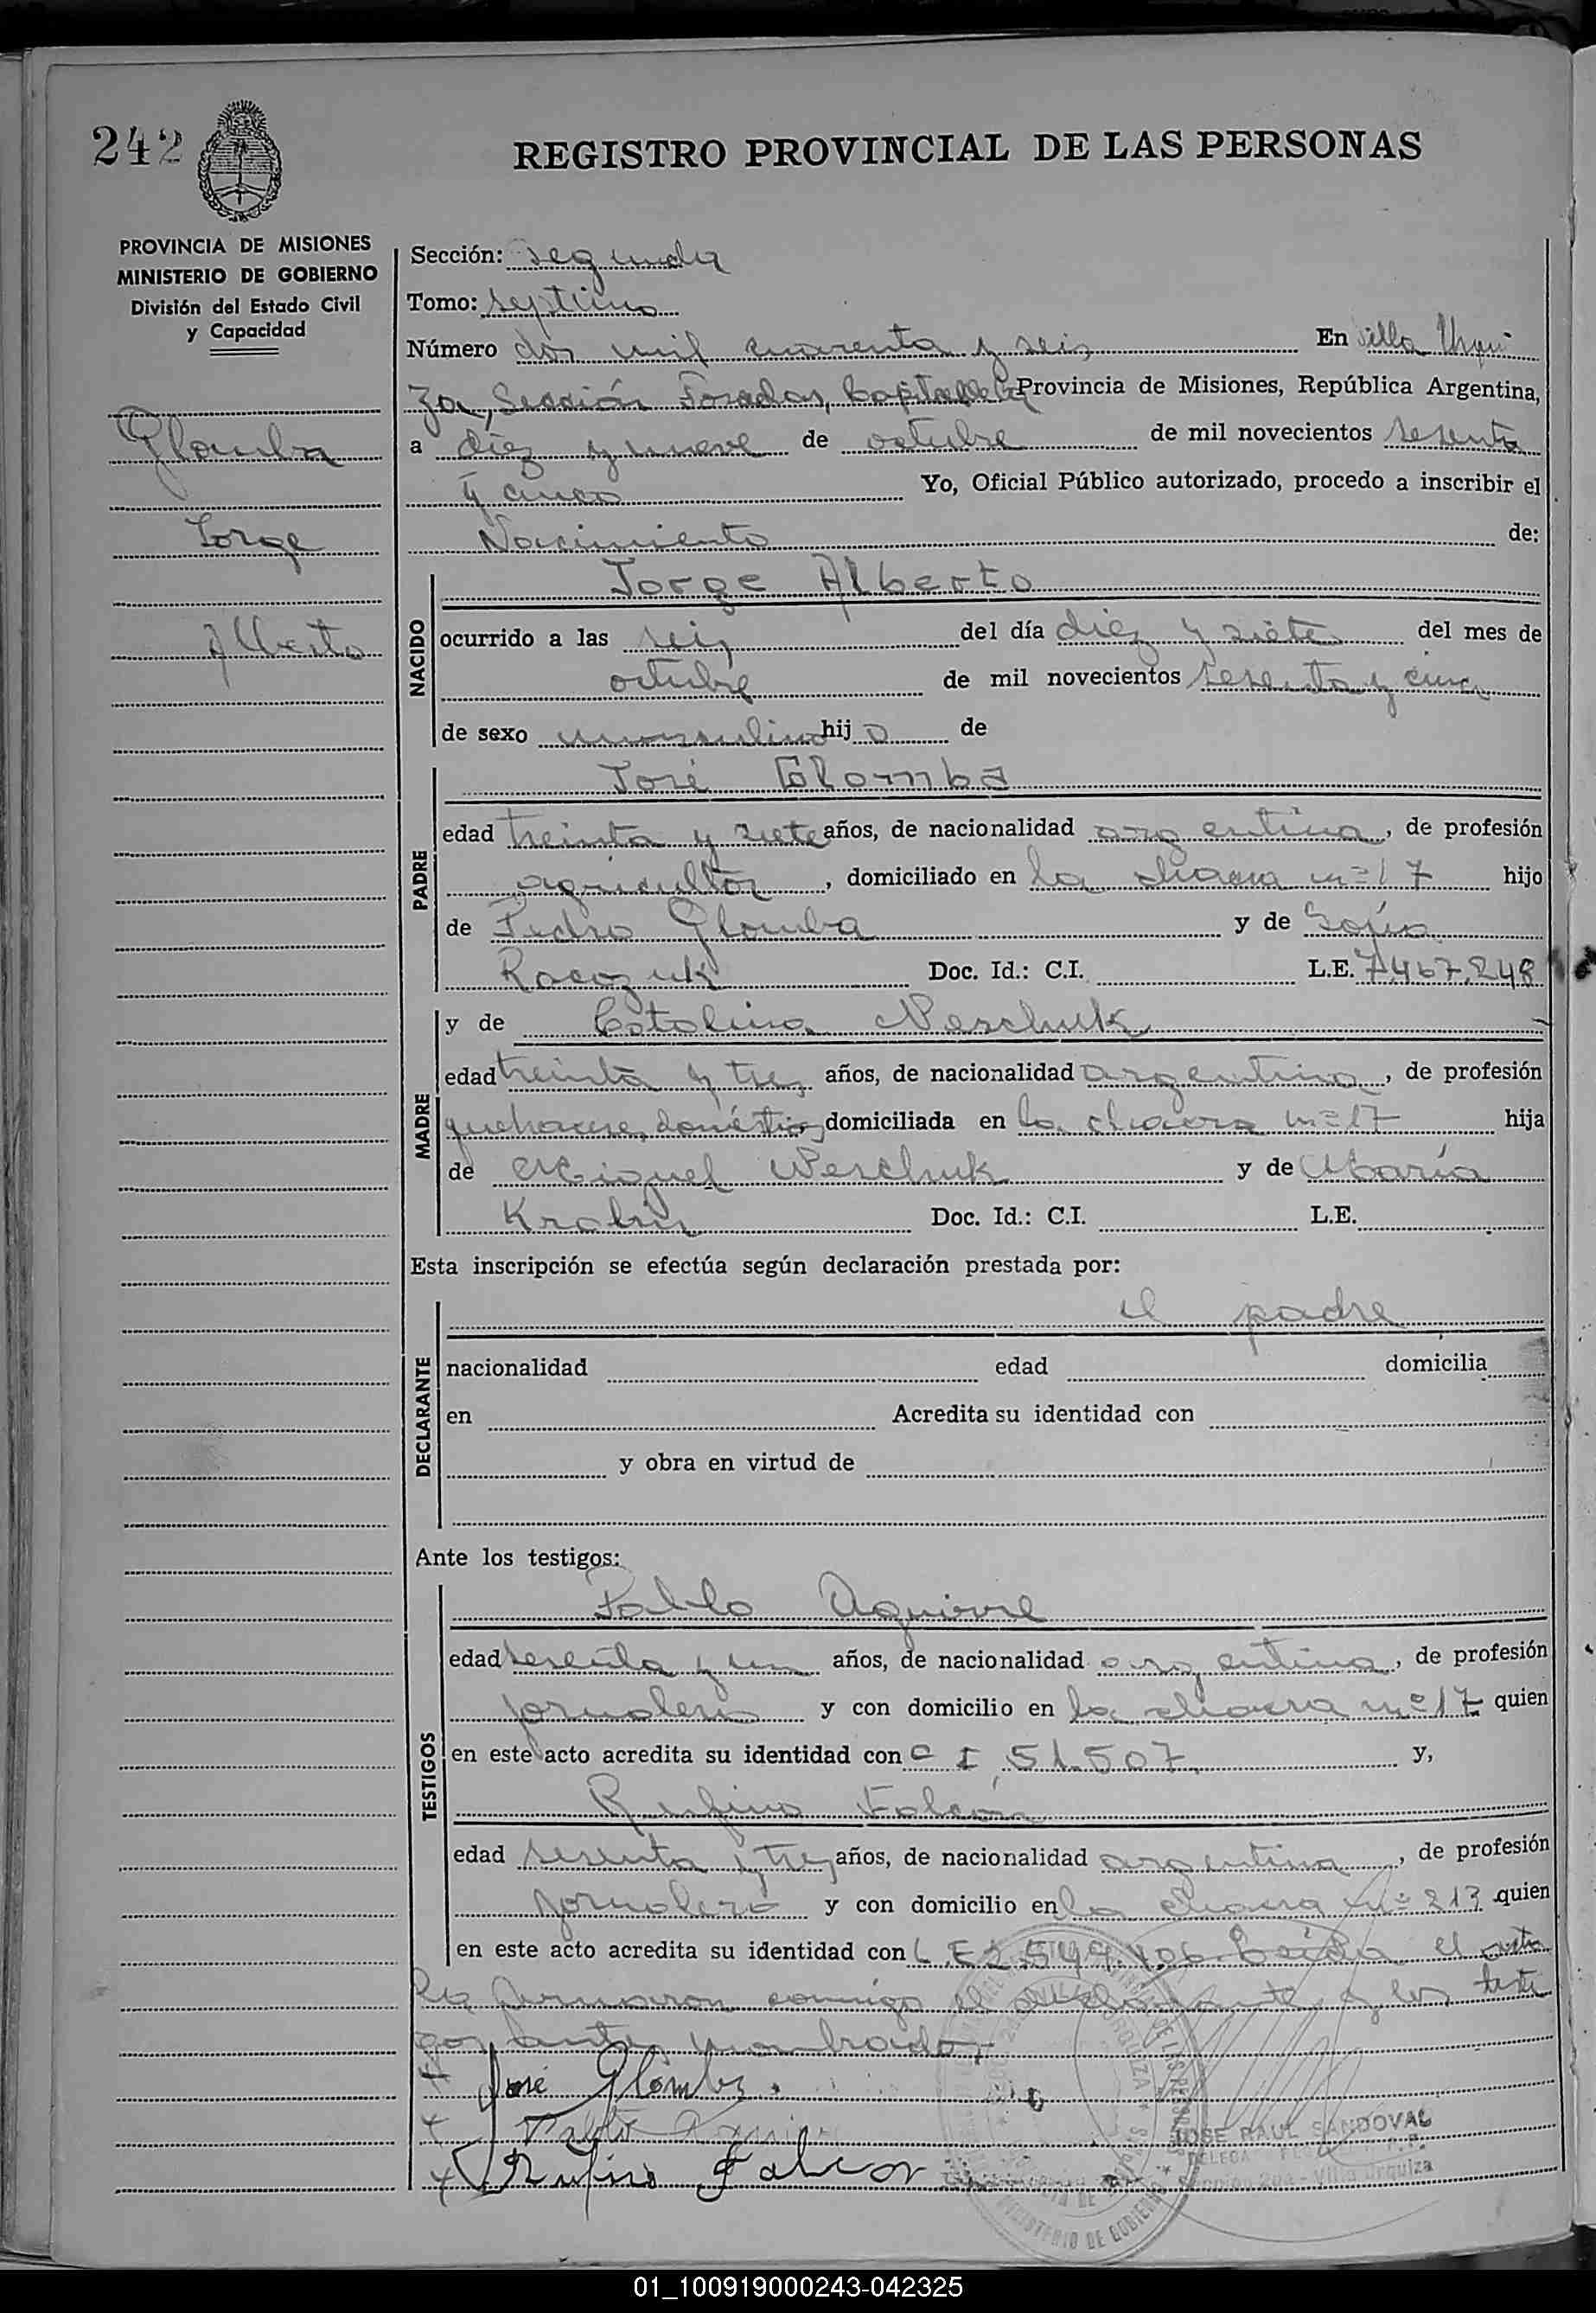 242
REGISTRO PROVINCIAL DE LAS PERSONAS
PROVINCIA DE MISIONES
MINISTERIO DE GOBIERNO
División del Estado Civil
y Capacidad
Glomba
Jorge
Alberto
Sección: segunda
Tomo: septimo
Número dos mil cuarenta y seis En Villa Urqui
za, Sección Posadas, Capital de la Provincia de Misiones, República Argentina,
a diez y nueve de octubre de mil novecientos sesenta
y cinco Yo, Oficial Público autorizado, procedo a inscribir el
Nacimiento de:
NACIDO
Jorge Alberto
ocurrido a las seis del día diez y siete del mes de
octubre de mil novecientos sesenta y cinco
de sexo masculino hijo de
PADRE
José Glomba
edad treinta y siete años, de nacionalidad argentina, de profesión
agricultor, domiciliado en la chacra nº 17 hijo
de Pedro Glomba y de Sofía
Racozuk Doc. Id.: C.I. L.E. 7.467.248
MADRE
y de Catalina Weschuk
edad treinta y tres años, de nacionalidad argentina, de profesión
quehaceres domésticos, domiciliada en la chacra nº 17 hija
de Miguel Weschuk y de María
Doc. Id.: C.I. L.E.
Esta inscripción se efectúa según declaración prestada por:
DECLARANTE
el padre
nacionalidad edad domicilia
en Acredita su identidad con
y obra en virtud de
Ante los testigos:
TESTIGOS
Pablo Aguirre
edad sesenta y un años, de nacionalidad argentina, de profesión
jornalero y con domicilio en la chacra nº 17 quien
en este acto acredita su identidad con C I 51.507 y,
Rufino Falcón
edad sesenta y tres años, de nacionalidad argentina, de profesión
jornalero y con domicilio en la chacra nº 213 quien
en este acto acredita su identidad con L.E 2.549.406. Leída el acta
la firmaron conmigo el declarante y los testi
gos antes nombrados
José Glomba.
Pablo Aguirre
Rufino Falcon
JOSE RAUL SANDOVAL
Sección 2da - Villa Urquiza
MINISTERIO DE GOBIERNO
01_100919000243-042325